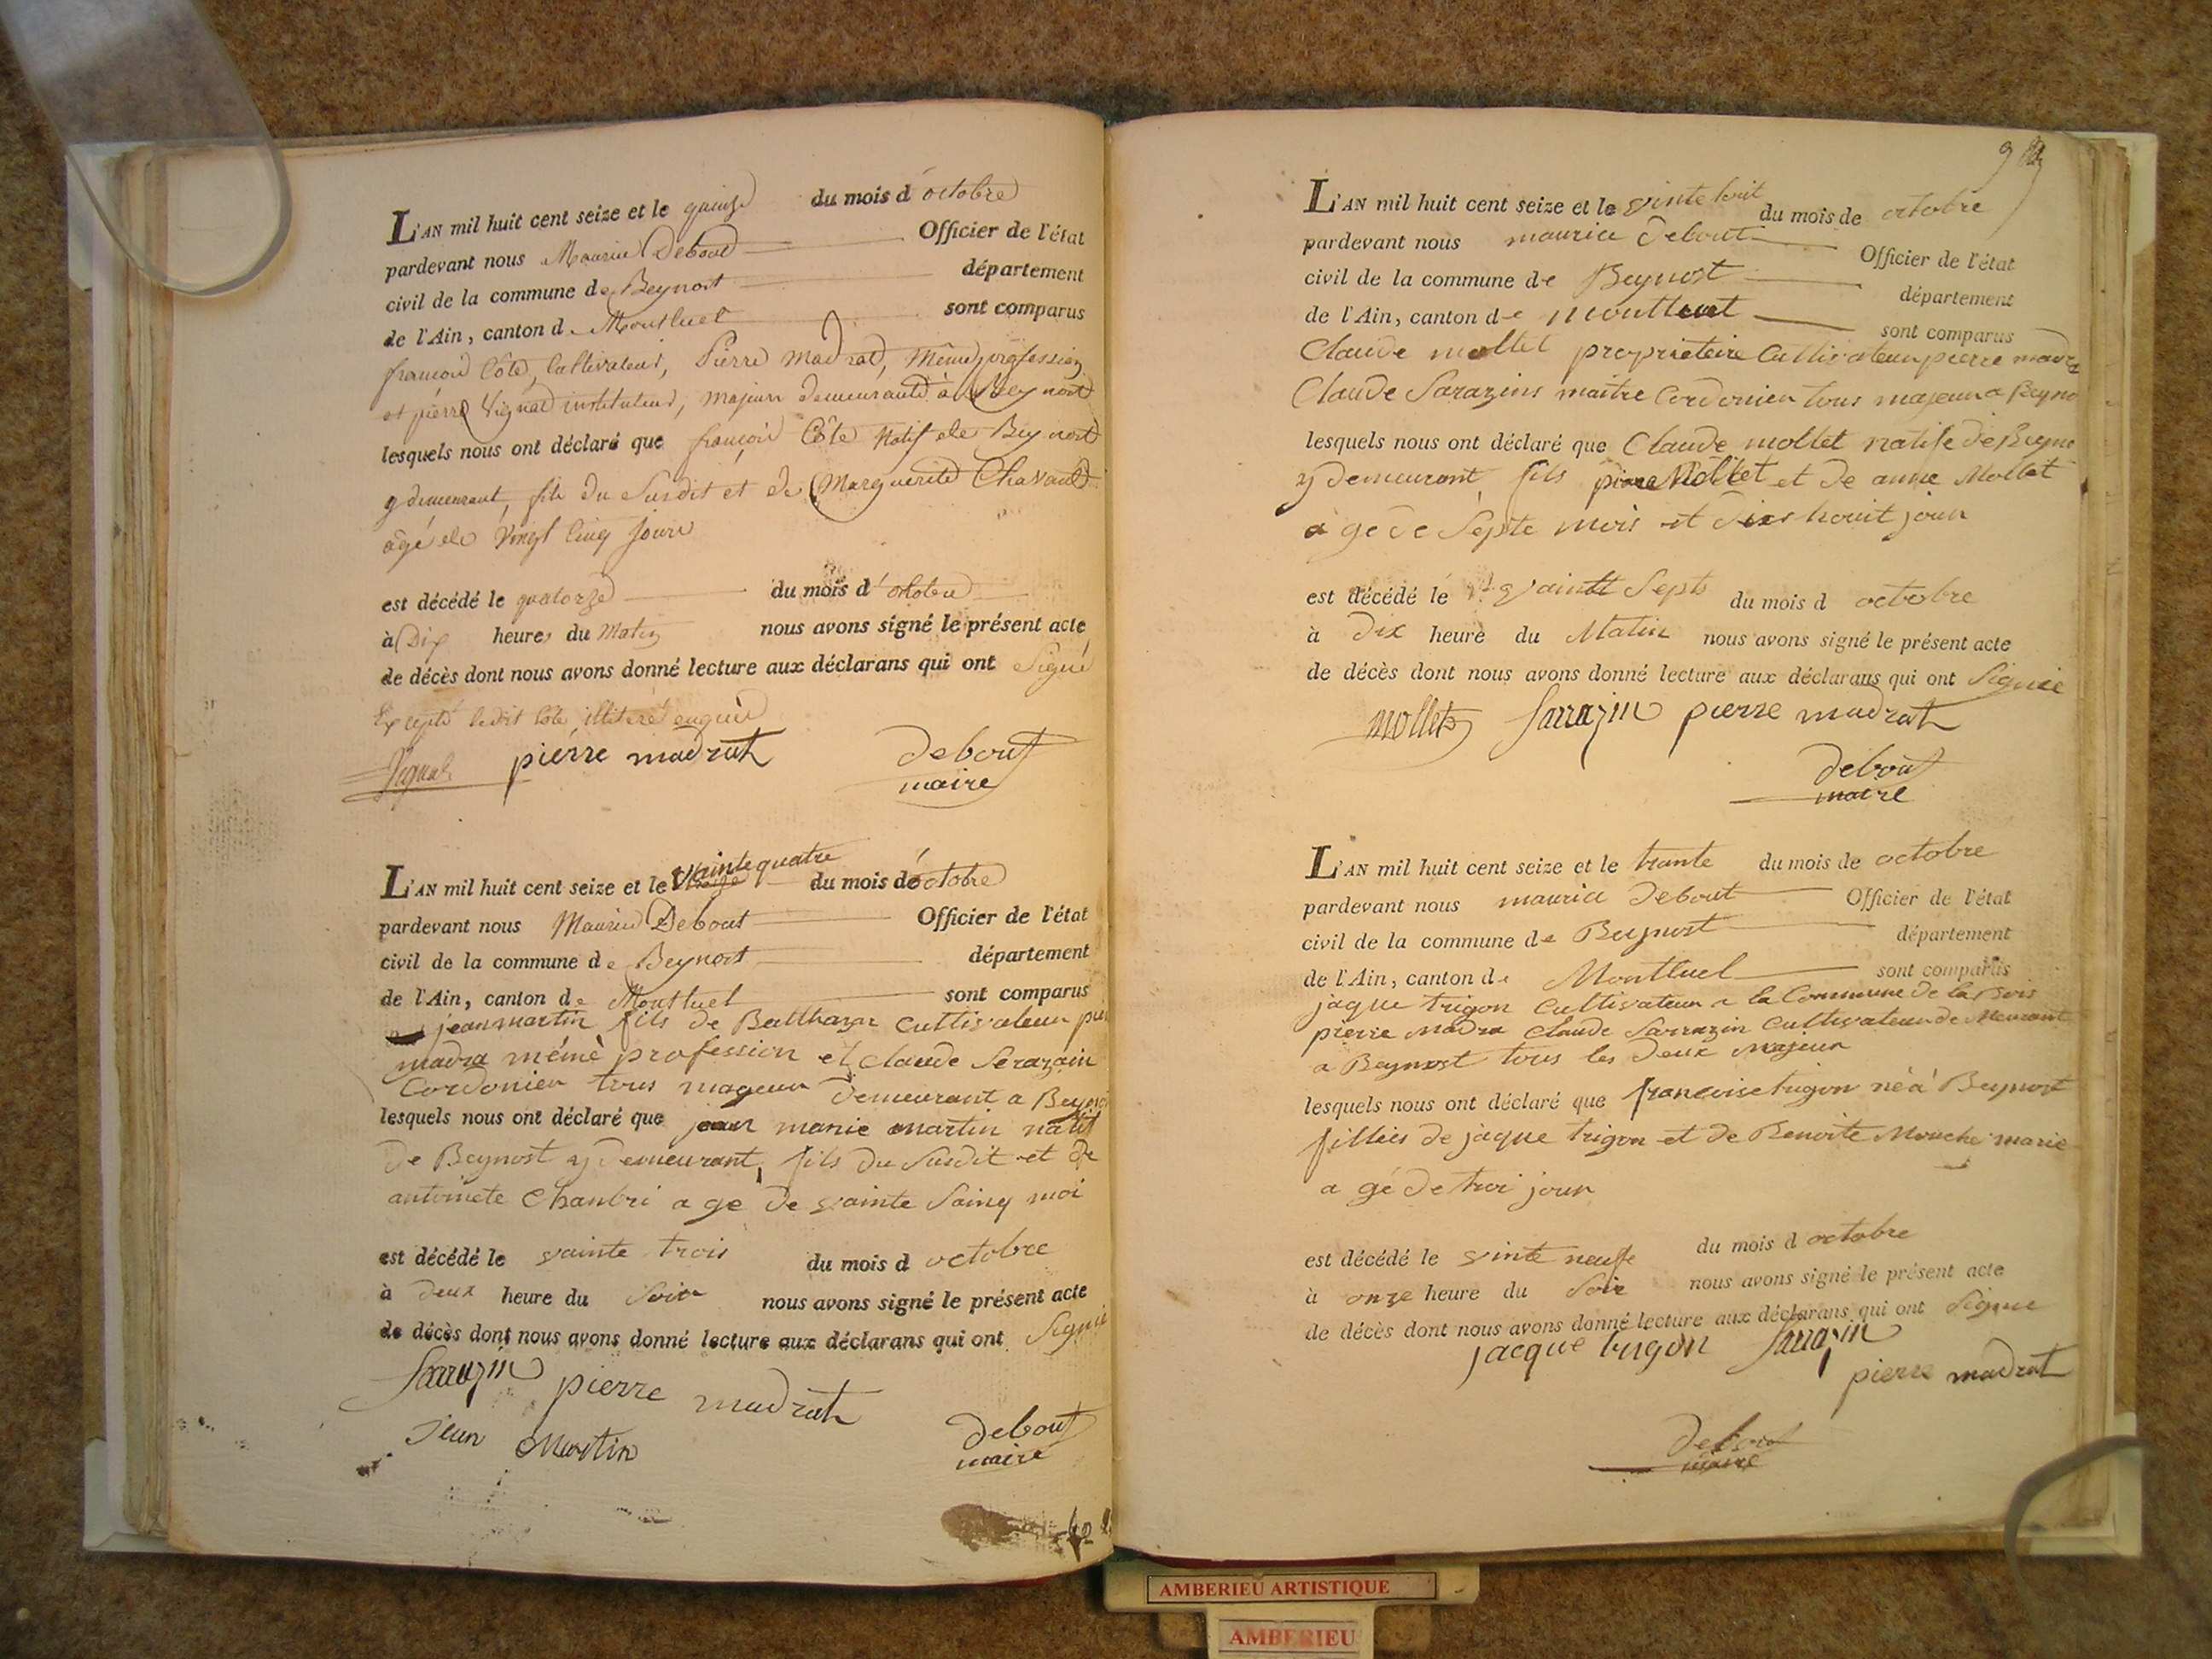 L'AN mil huit cent seize et le quinze du mois d'octobre
pardevant nous Maurice Debout Officier de l'état
civil de la commune de Beynost département
de l'Ain, canton de Montluel sont comparus
françois Côte, Cultivateur, Pierre madrat, même profession
et pierre Vignat instituteur, majeurs demeurants à Beynost
lesquels nous ont déclaré que françois Côte Natif de Beynost
y demeurant, fils du Susdit et de Marguerite Chavant
âgé de Vingt Cinq Jours
est décédé le quatorze du mois d'octobre
à Dix heures du Matin nous avons signé le présent acte
de décès dont nous avons donné lecture aux déclarans qui ont Signé
Excepté ledit Côte illiteré enquis
Vignat pierre madrat debout
maire
L'AN mil huit cent seize et le vainte quatre du mois d'octobre
pardevant nous Maurice Debout Officier de l'état
civil de la commune de Beynost département
de l'Ain, canton de Montluel sont comparus
jean martin fils de Balthazar cultivateur
madra même profession et claude Serazain
Cordonier tous mageur demeurant a
lesquels nous ont déclaré que jean marie martin natif
de Beynost y demeurant, fils du Susdit et de
antoinete Chanbri a ge de vainte Sainq moi
est décédé le vainte trois du mois d octobre
à deux heure du Soir nous avons signé le présent acte
de décès dont nous avons donné lecture aux déclarans qui ont Signie
Sarrazin pierre madrat
jean Martin debout
maire
L'AN mil huit cent seize et le vinte huit du mois de octobre
pardevant nous maurice debout Officier de l'état
civil de la commune de Beynost département
de l'Ain, canton de montluet sont comparus
Claude mollet proprieteire Cultivateur pierre madra
Claude Sarazins maitre Cordonier tous majeur a Beyno
lesquels nous ont déclaré que Claude mollet natife de Beyno
y demeurant fils pierre Mollet et de anne Mollet
a gé de Septe mois et dixs houit jour
est décédé le vainte Septs du mois d octobre
à dix heure du Matin nous avons signé le présent acte
de décès dont nous avons donné lecture aux déclarans qui ont Signie
Mollet Sarrazin pierre madrat
debout
maire
L'AN mil huit cent seize et le trante du mois de octobre
pardevant nous maurice debout Officier de l'état
civil de la commune de Beynost département
de l'Ain, canton de Montluel sont comparus
jaque trigon cultivateur a la Commune de la Bois
pierre Madra claude Sarrazin cultivateur demeurant
a Beynost tous les deux majeur
lesquels nous ont déclaré que francoise trigon né a Beynost
filliés de jaque trigon et de Benoite Mouche marie
a gé de troi jour
est décédé le vinte neufe du mois d octobre
à onze heure du Soir nous avons signé le présent acte
de décès dont nous avons donné lecture aux déclarans qui ont Signie
jacque trigon Sarrazin
pierre madrat
debout
maire
AMBERIEU ARTISTIQUE
AMBERIEU